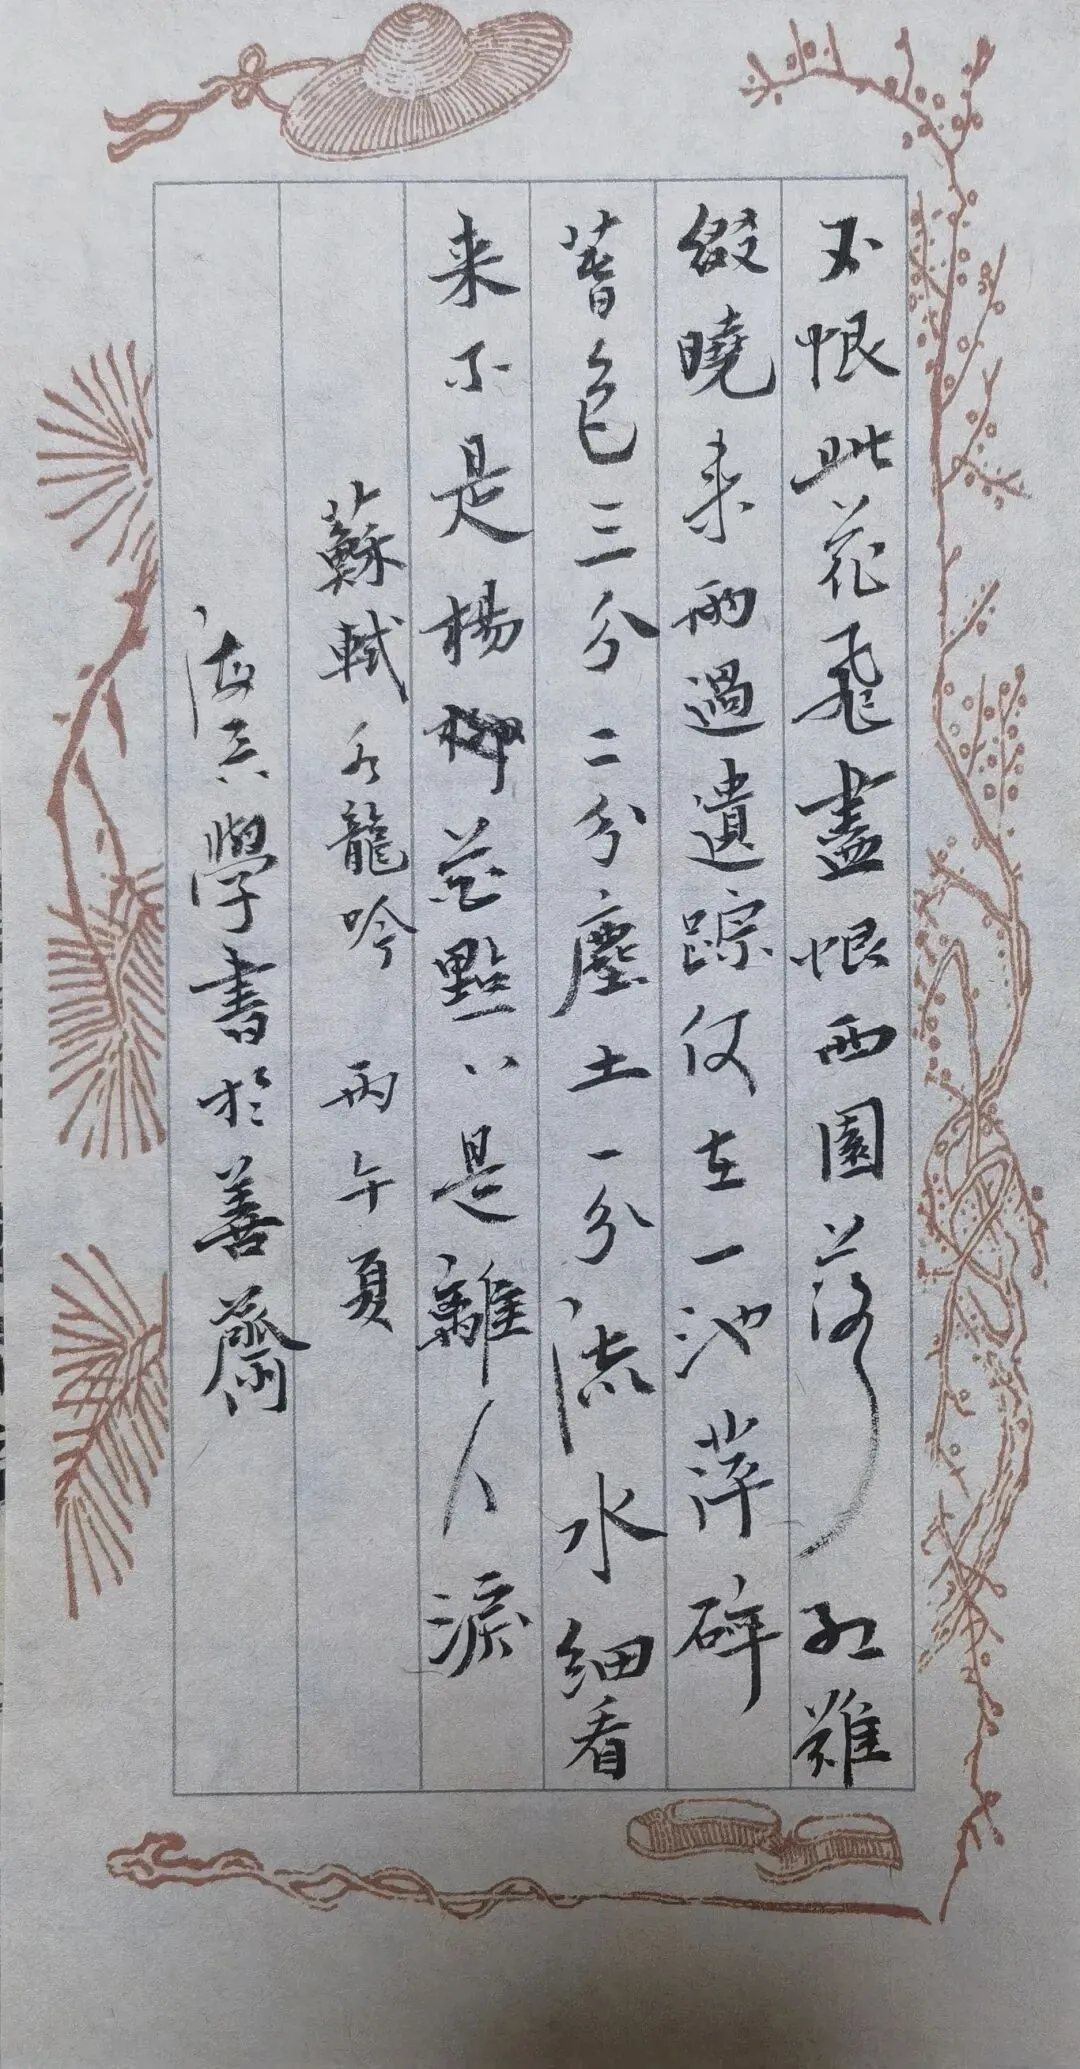 不恨此花飛盡恨西園落红難
缀曉来雨過遺踪何在一池萍碎
春色三分二分塵土一分流水細看
来不是楊柳花點〻是離人淚
蘇軾水龍吟 丙午夏
海學書於善齋